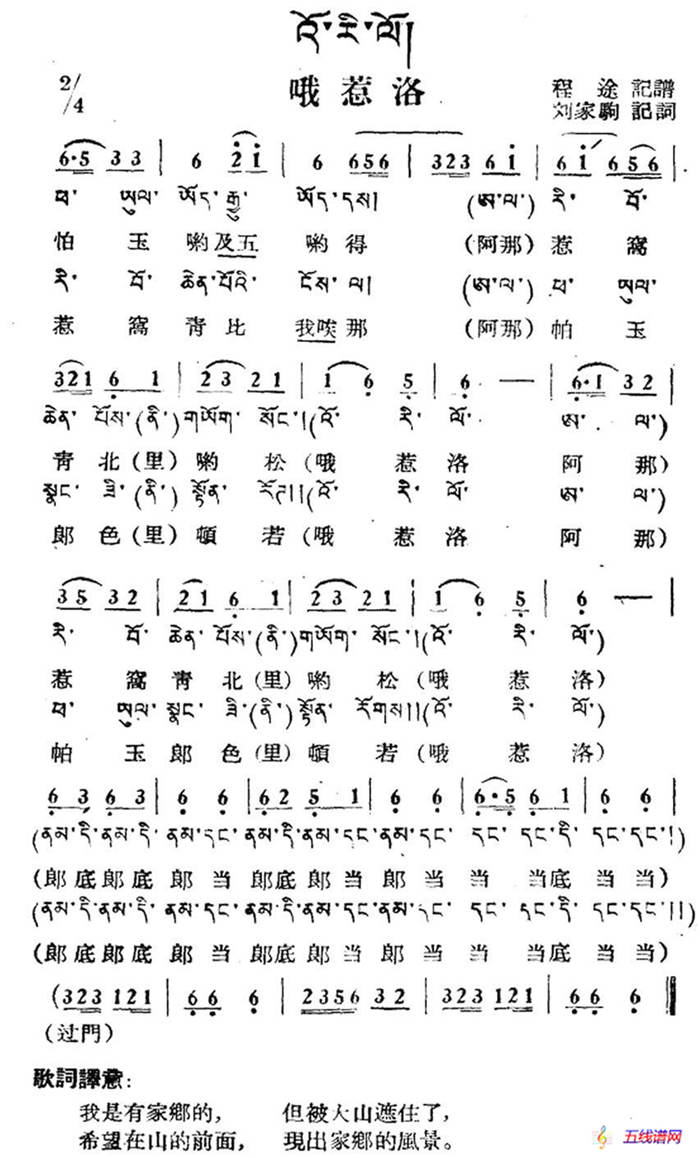 འོ་རི་ལོ།
哦惹洛
2/4
程 途 記譜
刘家駒 記詞
6·5 3 3 | 6 2 i | 6 656 | 323 6 i | 6 i 656 |
པ་ ཡུལ་ ཡོད་ རྒྱུ་ ཡོད་དས། (ཨ་ལ་) རི་ བོ་
怕 玉 喲及五 喲得 (阿那) 惹 窩
རི་ བོ་ ཆེན་པོའི་ ངོས་ ལ། (ཨ་ལ་) པ་ ཡུལ་
惹 窩 青比 我唉那 (阿那) 帕 玉
321 6 1 | 23 21 | 1 6 5 | 6 — | 6·1 32 |
ཆེན་ པོས་(ནི་)གཡོག་ སོང་།(འོ་ རི་ ལོ་ ཨ་ ལ་)
青 北(里)喲 松(哦 惹 洛 阿 那)
སྣང་ ཟི་ (ནི་) སྟོན་ (འོ་ རི་ ལོ་ ཨ་ ལ་)
郎 色(里)頓 若(哦 惹 洛 阿 那)
35 32 | 21 6 1 | 23 21 | 1 6 5 | 6 — |
རི་ བོ་ ཆེན་ པོས་(ནི་)གཡོག་ སོང་།(འོ་ རི་ ལོ་)
惹 窩 青 北(里)喲 松(哦 惹 洛)
པ་ ཡུལ་ སྣང་ ཟི་(ནི་)སྟོན་ རོགས།།(འོ་ རི་ ལོ་)
帕 玉 郎 色(里)頓 若(哦 惹 洛)
6 3 6 3 | 6 6 | 62 5 1 | 6 6 | 6·5 6 1 | 6 6 |
(ནམ་དི་ནམ་དི་ ནམ་དང་ ནམ་དི་ནམ་དང་ནམ་དང་ དང་ དང་དི་ དང་དང་།)
(郎底郎底 郎 当 郎底郎当郎 当 当 当底 当 当)
(ནམ་དི་ནམ་དི་ ནམ་དང་ ནམ་དི་ནམ་དང་ནམ་དང་ དང་ དང་དི་ དང་དང་།།)
(郎底郎底 郎 当 郎底郎当郎 当 当 当底 当 当)
(323 121 | 6 6 6 | 2356 3 2 | 323 121 | 6 6 6 ‖
(过門)
歌詞譯意:
我是有家鄉的， 但被大山遮住了，
希望在山的前面， 現出家鄉的風景。
五线谱网
www.wuxianpu.com